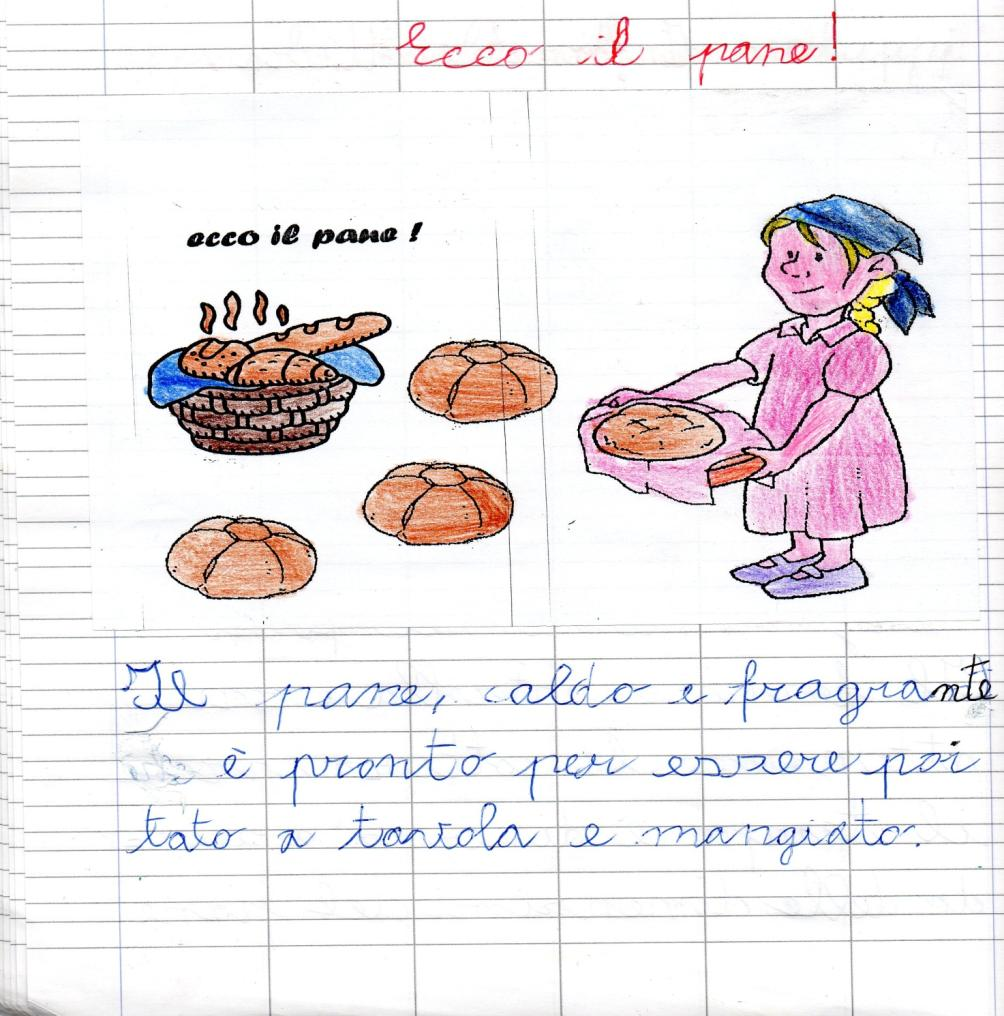 Ecco il pane!
ecco il pane !
Il pane, caldo e fragrante
è pronto per essere poi
tato a tavola e mangiato.